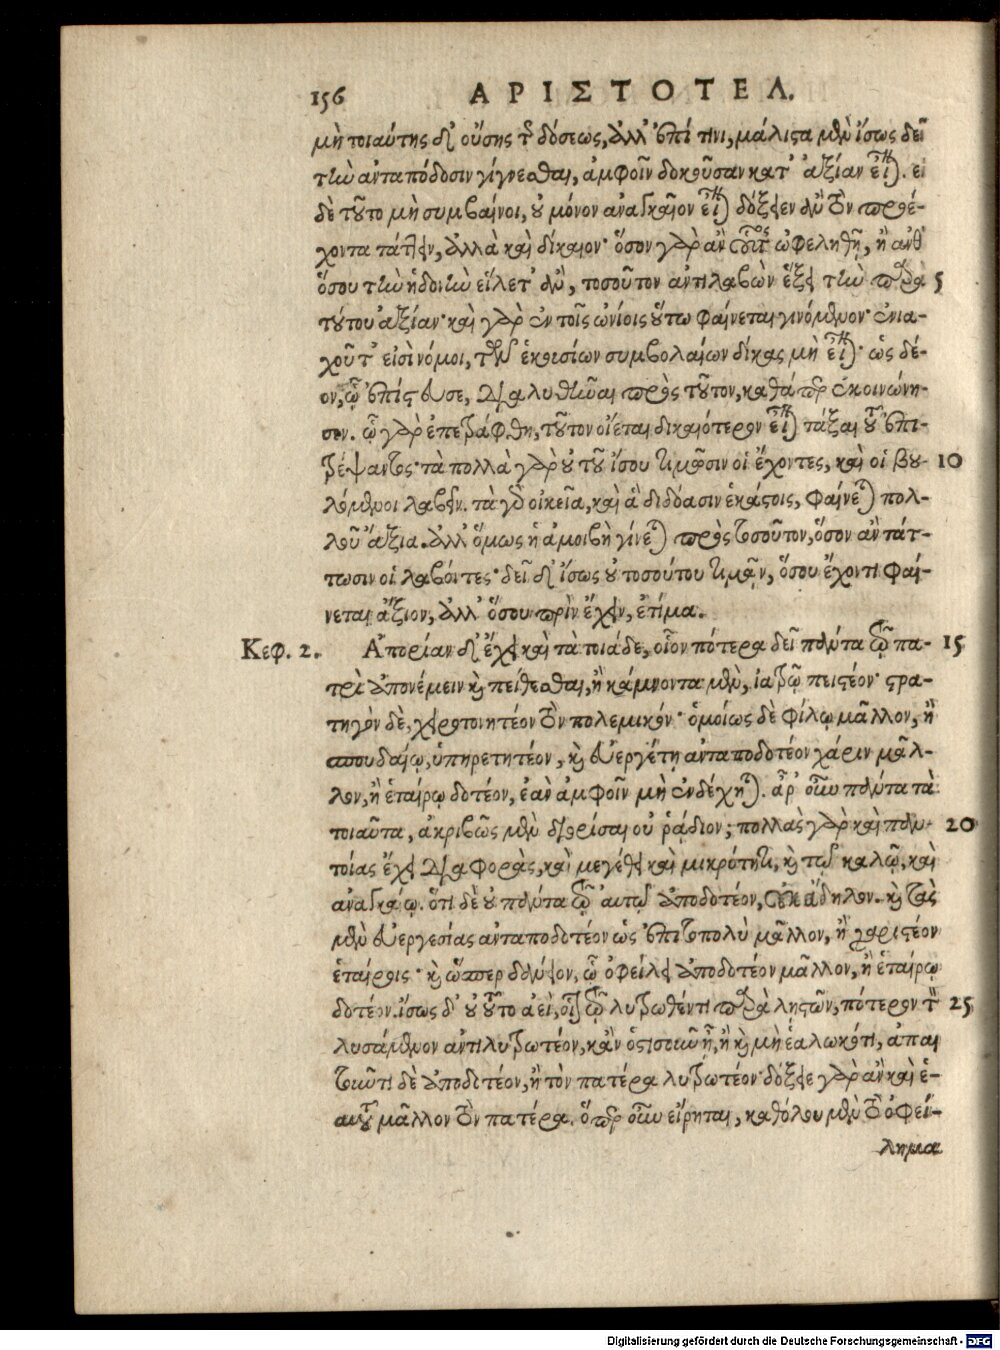 156 ΑΡΙΣΤΟΤΕΛ.
μὴ τοιαύτης δ' οὔσης τῆς δόσεως, ἀλλ' ἐπί τινι, μάλιστα μὲν ἴσως δεῖ
τὴν ἀνταπόδοσιν γίγνεσθαι, ἀμφοῖν δοκοῦσαν κατ' ἀξίαν εἶναι. εἰ
δὲ τοῦτο μὴ συμβαίνοι, οὐ μόνον ἀναγκαῖον εἶναι δόξειεν ἂν τὸν προέ-
χοντα τάττειν, ἀλλὰ καὶ δίκαιον· ὅσον γὰρ ἂν οὗτος ὠφεληθῇ, ἢ ἀνθ'
ὅσου τὴν ἡδονὴν εἵλετ' ἂν, τοσοῦτον ἀντιλαβὼν ἕξει τὴν παρὰ 5
τούτου ἀξίαν· καὶ γὰρ ἐν τοῖς ὠνίοις οὕτω φαίνεται γινόμενον· ἐνια-
χοῦ τ' εἰσὶ νόμοι, τῶν ἑκουσίων συμβολαίων δίκας μὴ εἶναι· ὡς δέ-
ον, ᾧ ἐπίστευσε, διαλυθῆναι πρὸς τοῦτον, καθάπερ ἐκοινώνη-
σεν. ᾧ γὰρ ἐπετράφθη, τοῦτον οἴεται δικαιότερον εἶναι τάξαι τοῦ ἐπι-
τρέψαντος· τὰ πολλὰ γὰρ οὐ τοῦ ἴσου τιμῶσιν οἱ ἔχοντες, καὶ οἱ βου- 10
λόμενοι λαβεῖν. τὰ γὰρ οἰκεῖα, καὶ ἃ διδόασιν ἑκάστοις, φαίνεται πολ-
λοῦ ἄξια. ἀλλ' ὅμως ἡ ἀμοιβὴ γίνεται πρὸς τοσοῦτον, ὅσον ἂν τάτ-
τωσιν οἱ λαβόντες· δεῖ δ' ἴσως οὐ τοσούτου τιμᾷν, ὅσου ἔχοντι φαί-
νεται ἄξιον, ἀλλ' ὅσου πρὶν ἔχειν, ἐτίμα.
Κεφ. 2. Ἀπορίαν δ' ἔχει καὶ τὰ τοιάδε, οἷον πότερα δεῖ πάντα τῷ πα- 15
τρὶ ἀπονέμειν καὶ πείθεσθαι, ἢ κάμνοντα μὲν, ἰατρῷ πειστέον· στρα-
τηγὸν δὲ, χειροτονητέον τὸν πολεμικόν· ὁμοίως δὲ φίλῳ μᾶλλον, ἢ
σπουδαίῳ, ὑπηρετητέον, καὶ εὐεργέτῃ ἀνταποδοτέον χάριν μᾶλ-
λον, ἢ ἑταίρῳ δοτέον, ἐὰν ἀμφοῖν μὴ ἐνδέχηται. ἆρ' οὖν πάντα τὰ
τοιαῦτα, ἀκριβῶς μὲν διορίσαι οὐ ῥάδιον; πολλὰς γὰρ καὶ παν- 20
τοίας ἔχει διαφορὰς, καὶ μεγέθει καὶ μικρότητι, καὶ τῷ καλῷ, καὶ
ἀναγκαίῳ. ὅτι δὲ οὐ πάντα τῷ αὐτῷ ἀποδοτέον, οὐκ ἄδηλον. καὶ τὰς
μὲν εὐεργεσίας ἀνταποδοτέον ὡς ἐπιτοπολὺ μᾶλλον, ἢ χαριστέον
ἑταίροις· καὶ ὥσπερ δάνειον, ᾧ ὀφείλει ἀποδοτέον μᾶλλον, ἢ ἑταίρῳ
δοτέον. ἴσως δ' οὐ τοῦτο ἀεὶ, οἷον τῷ λυτρωθέντι παρὰ λῃστῶν, πότερον τὸν 25
λυσάμενον ἀντιλυτρωτέον, κἂν ὁστισοῦν ᾖ, ἢ καὶ μὴ ἑαλωκότι, ἀπαι
τοῦντι δὲ ἀποδοτέον, ἢ τὸν πατέρα λυτρωτέον· δόξειε γὰρ ἂν καὶ ἑ-
αυτοῦ μᾶλλον τὸν πατέρα. ὅπερ οὖν εἴρηται, καθόλου μὲν τὸ ὀφεί-
λημα
Digitalisierung gefördert durch die Deutsche Forschungsgemeinschaft - DFG